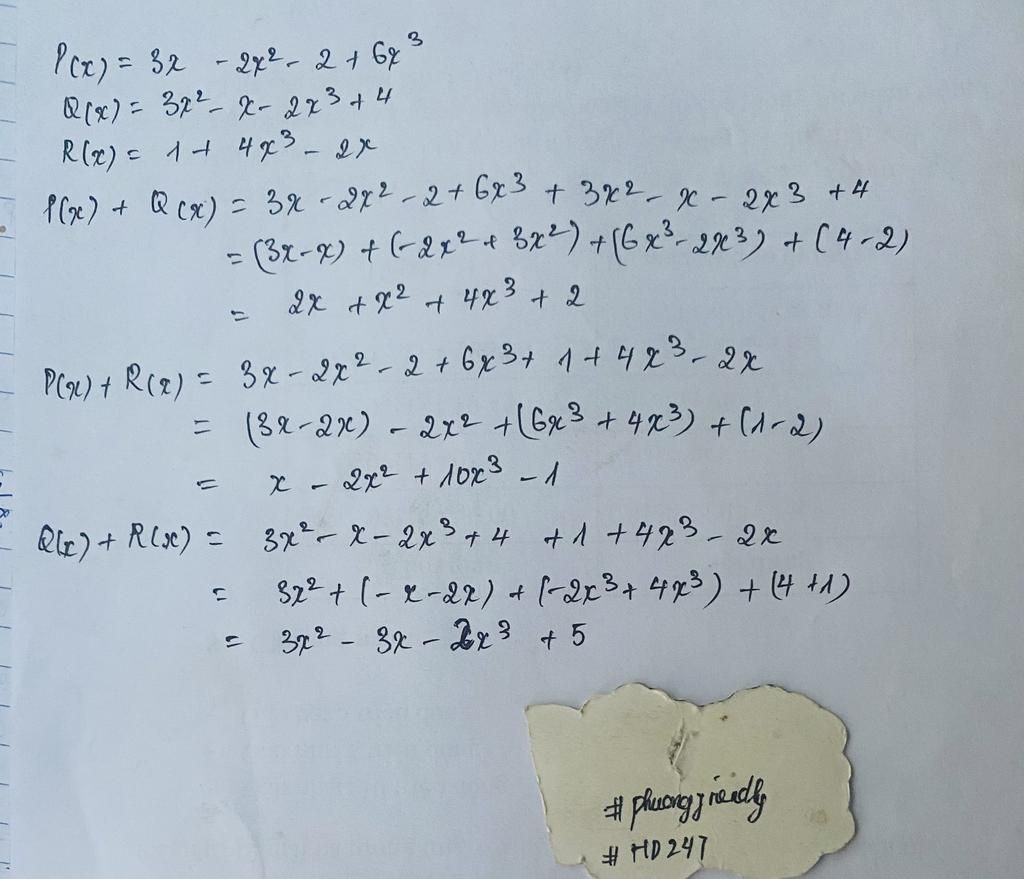 P(x) = 3x - 2x² - 2 + 6x³
Q(x) = 3x² - x - 2x³ + 4
R(x) = 1 + 4x³ - 2x
P(x) + Q(x) = 3x - 2x² - 2 + 6x³ + 3x² - x - 2x³ + 4
= (3x - x) + (-2x² + 3x²) + (6x³ - 2x³) + (4 - 2)
= 2x + x² + 4x³ + 2
P(x) + R(x) = 3x - 2x² - 2 + 6x³ + 1 + 4x³ - 2x
= (3x - 2x) - 2x² + (6x³ + 4x³) + (1 - 2)
= x - 2x² + 10x³ - 1
Q(x) + R(x) = 3x² - x - 2x³ + 4 + 1 + 4x³ - 2x
= 3x² + (- x - 2x) + (-2x³ + 4x³) + (4 + 1)
= 3x² - 3x - 2x³ + 5
# HD247